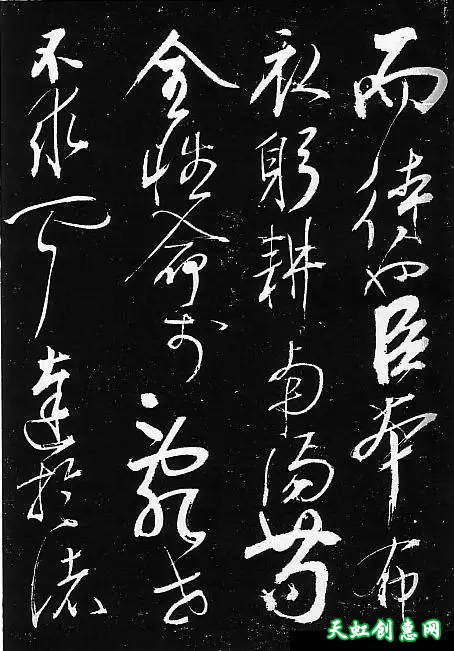 而待也臣本布
衣躬耕南陽苟
全性命於亂世
不求聞達於諸
天虹创意网